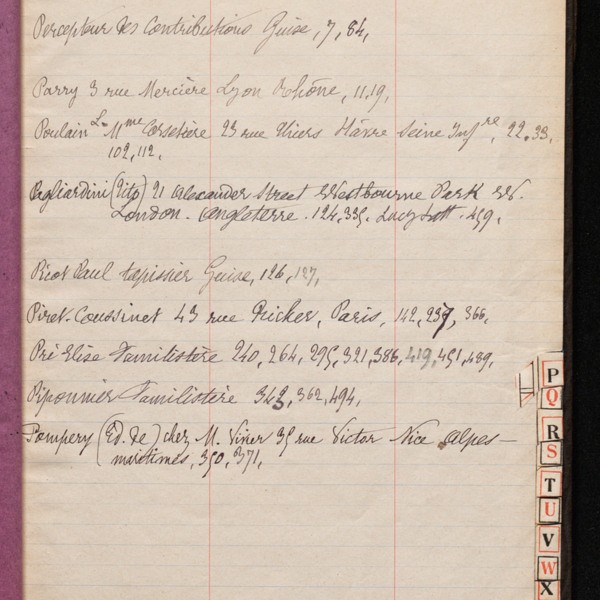 Percepteur des Contributions Guise, 7, 84,
Parry 3 rue Mercière Lyon Rhône, 11, 19,
Poulain L. Mme Corsetière 23 rue Thiers Hâvre Seine Infre, 22, 33,
102, 112,
Pagliardini (Tito) 21 Alexander Street Westbourne Park W.
London. Angleterre. 124, 335, 459,
Picot Paul tapissier Guise, 126, 127,
Piret-Coussinet 43 rue Richer, Paris, 142, 237, 366,
Pré Elise Familistère 240, 264, 295, 321, 386, 419, 451, 489,
Piponnier Familistère 343, 362, 494,
Pompery (Ed. de) chez M. 35 rue Victor Nice Alpes-
maritimes, 350, 371,
P
Q
R
S
T
U
V
W
X